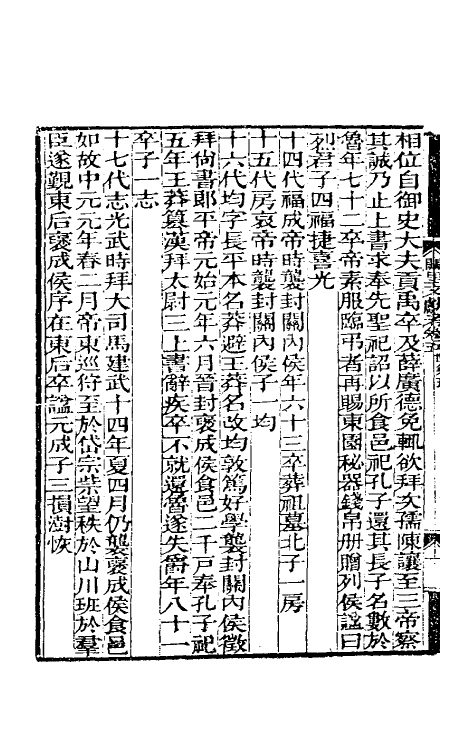 相位自御史大夫貢禹卒及薛廣德免輒欲拜次孺陳讓至三帝察
其誠乃止上書求奉先聖祀詔以所食邑祀孔子還其長子名數於
魯年七十二卒帝素服臨弔者再賜東園秘器錢帛册贈列侯謚曰
列君子四福捷喜光
十四代福成帝時襲封關內侯年六十三卒葬祖墓北子一房
十五代房哀帝時襲封關內侯子一均
十六代均字長平本名莽避王莽名改均敦篤好學襲封關內侯徵
拜尚書郎平帝元始元年六月晉封褒成侯食邑二千戸奉孔子祀
五年王莽篡漢拜太尉三上書辭疾卒不就還魯遂失爵年八十一
卒子一志
十七代志光武時拜大司馬建武十四年夏四月仍襲褒成侯食邑
如故中元元年春二月帝東巡狩至於岱宗柴望秩於山川班於羣
臣遂覲東后褒成侯序在東后卒謚元成子三損澍恢